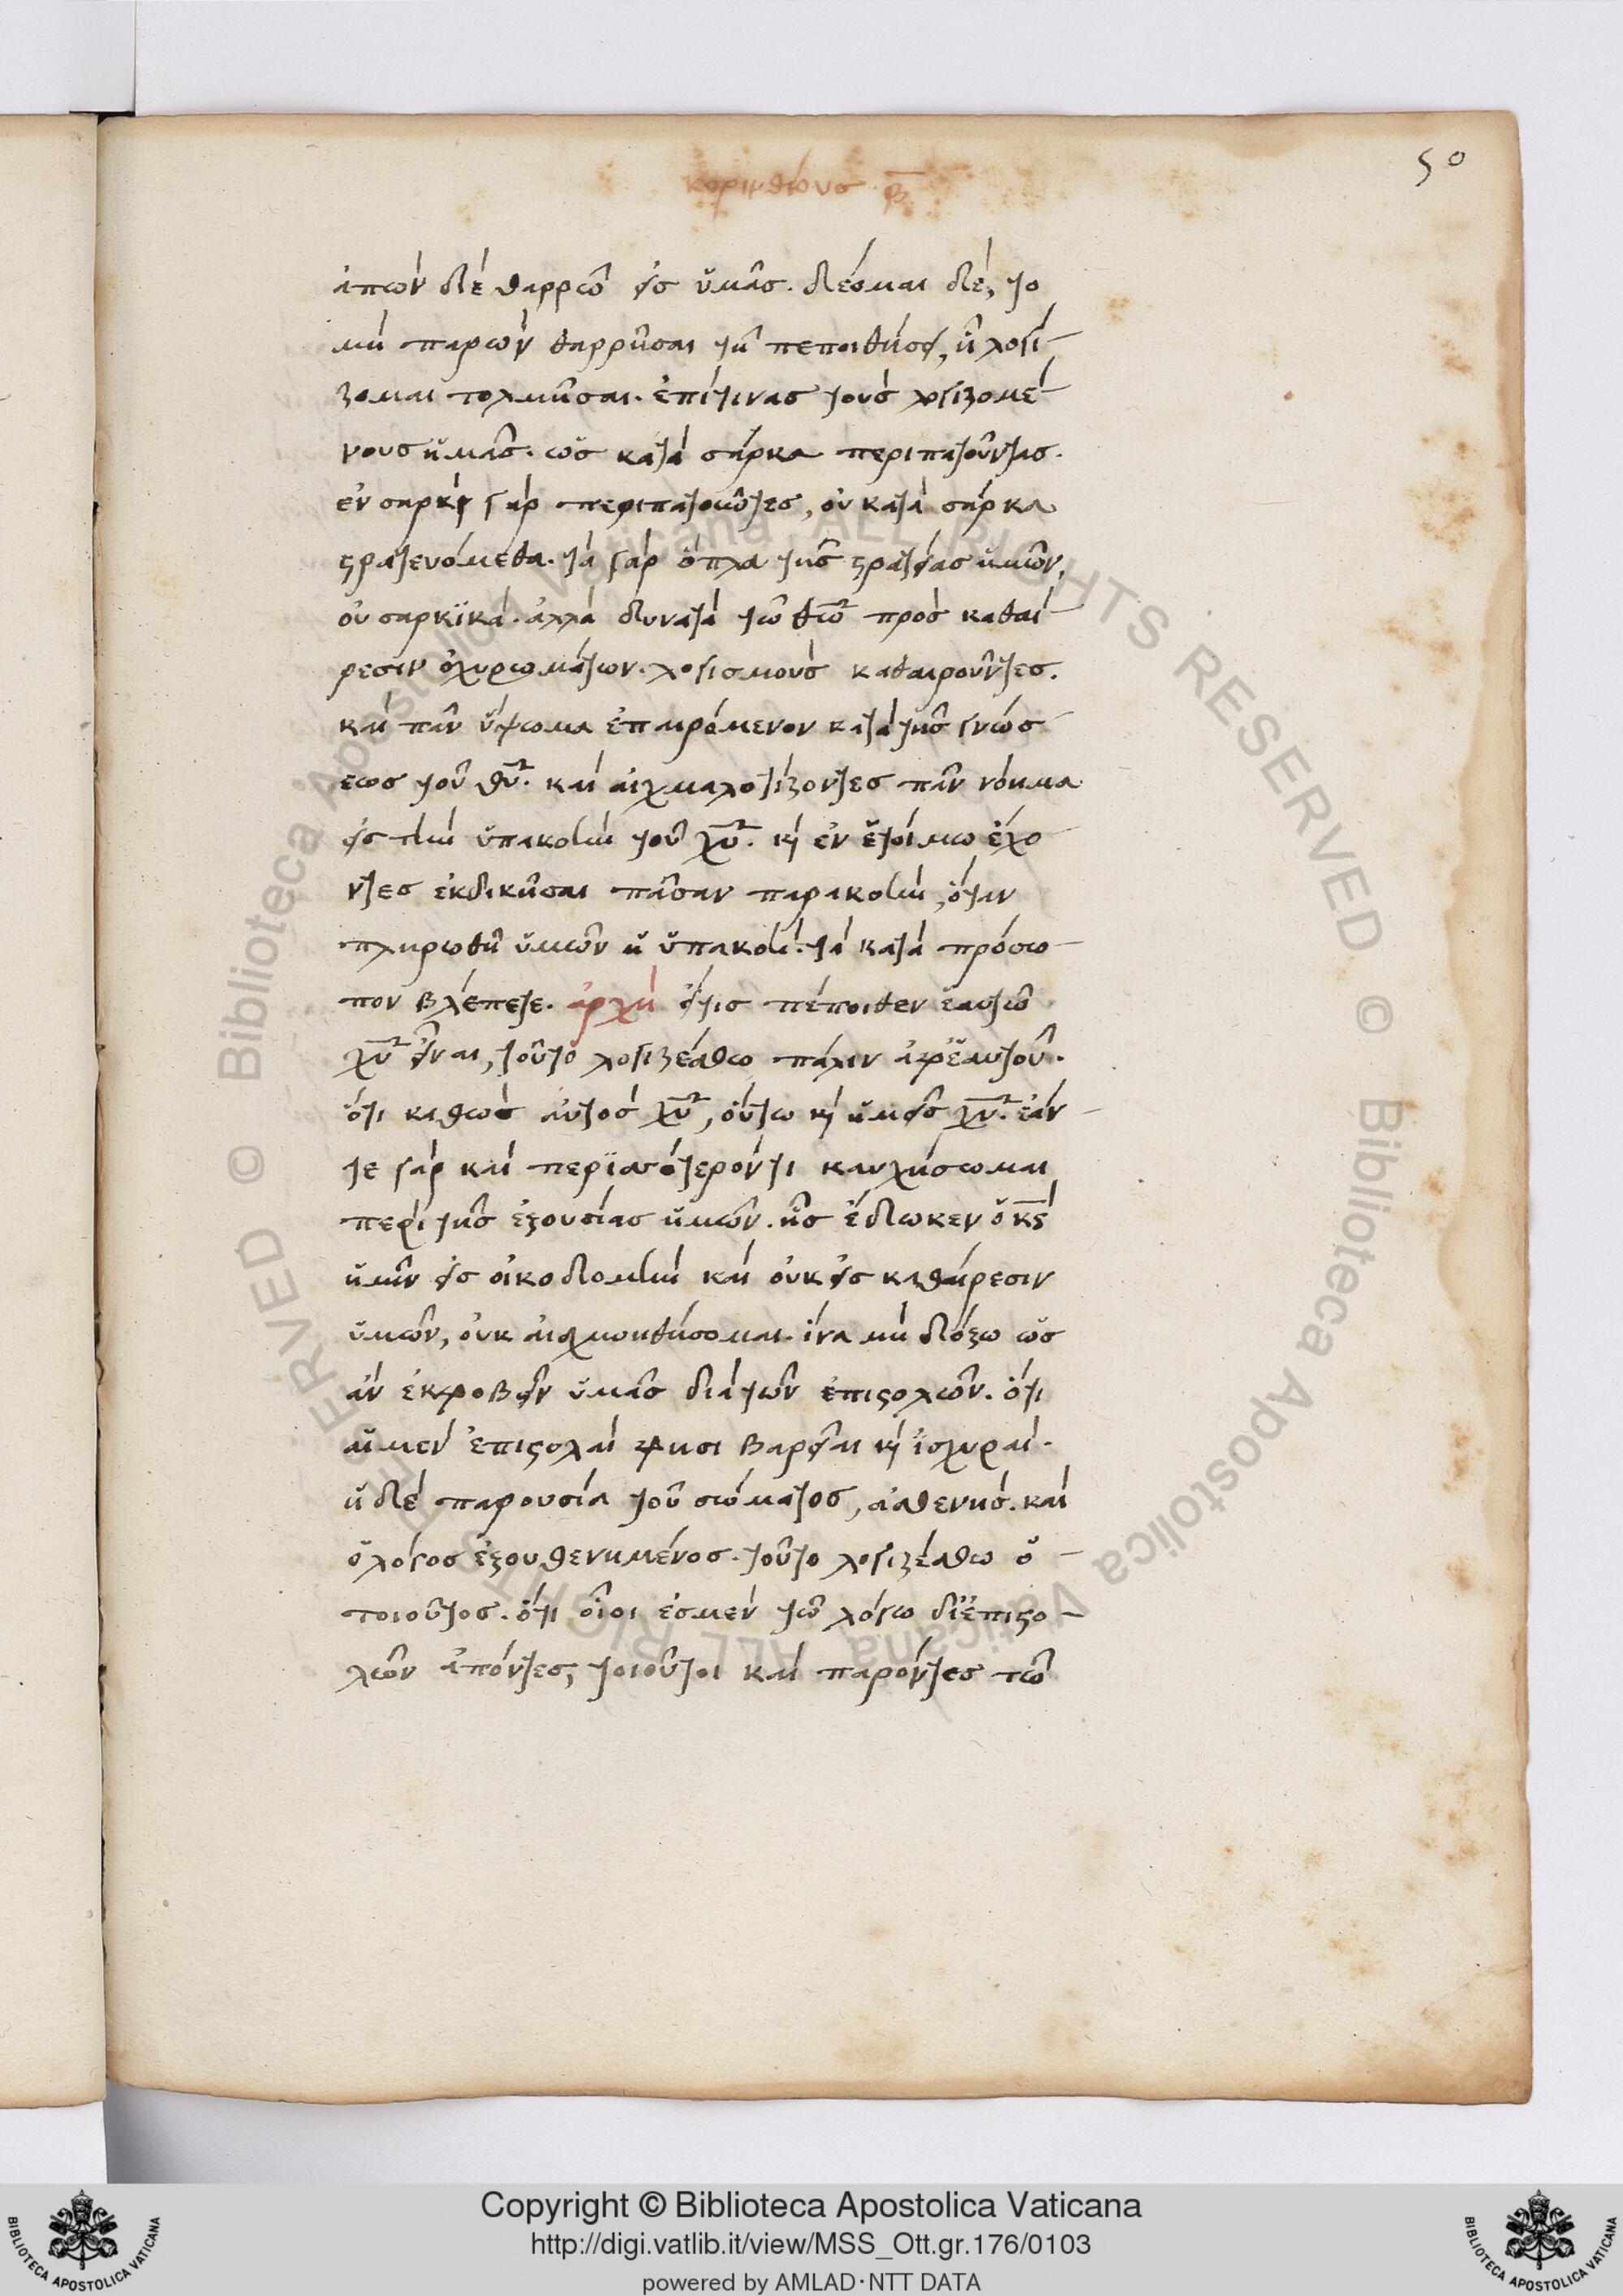 50
κορινθίους β̅
ἀπὼν δὲ θαρρῶ εἰς ὑμᾶς. δέομαι δὲ, το
μὴ παρὼν θαρρῆσαι τῆ πεποιθήσει, ἧ λογί-
ζομαι τολμῆσαι. ἐπίτινας τοὺς λογιζομέ-
νους ἡμᾶς. ὡς κατὰ σάρκα περιπατοῦντας.
ἐν σαρκὶ γὰρ περιπατοῦντες, οὐ κατὰ σάρκα
στρατευόμεθα. τὰ γὰρ ὅπλα τῆς στρατείας ἡμῶν,
οὐ σαρκϊκὰ. ἀλλὰ δυνατὰ τῶ θ̅ω̅ πρὸς καθαί-
ρεσιν ὀχυρωμάτων. λογισμοὺς καθαιροῦντες.
καὶ πᾶν ὕψωμα ἐπαιρόμενον κατὰ τῆς γνώσ-
εως τοῦ θ̅υ̅. καὶ αἰχμαλοτίζοντες πᾶν νόημα
εἰς τὴν ὑπακοὴν τοῦ χ̅υ̅. κὶ ἐν ἑτοίμω ἔχο
ντες ἐκδικῆσαι πᾶσαν παρακοὴν, ὅταν
πληρωθῆ ὑμῶν ἡ ὑπακοὴ. τὰ κατὰ πρόσω-
πον βλέπετε. ἀρχὴ εἴτις πέποιθεν ἑαυτῶ
χ̅υ̅ εἶναι, τοῦτο λογιζέσθω πάλιν ἀφ'ἑαυτοῦ.
ὅτι καθὼς αὐτὸς χ̅υ̅, οὕτω κὶ ἡμεῖς χ̅υ̅. ἐάν-
τε γὰρ καὶ περϊσσότερόντι καυχήσωμαι
περὶ τῆς ἐξουσίας ἡμῶν. ἧς ἔδωκεν ὁ κ̅ς̅
ἡμῖν εἰς οἰκοδομὴν καὶ οὐκ εἰς καθαίρεσιν
ὑμῶν, οὐκ αἰσχυνθήσομαι. ἵνα μὴ δόξω ὡς
ἂν ἐκφοβεῖν ὑμᾶς διὰ τῶν ἐπιστολῶν. ὅτι
αἱ μὲν ἐπιστολαὶ φησι βαρεῖαι κὶ ἰσχυραὶ.
ἡ δὲ παρουσία τοῦ σώματος, ἀσθενὴς. καὶ
ὁ λόγος ἐξουθενημένος. τοῦτο λογιζέσθω ὁ-
τοιοῦτος. ὅτι οἷοι ἐσμὲν τῶ λόγω δϊ'ἐπιστο-
λῶν ἀπόντες, τοιοῦτοι καὶ παρόντες τῶ
Copyright © Biblioteca Apostolica Vaticana
http://digi.vatlib.it/view/MSS_Ott.gr.176/0103
powered by AMLAD·NTT DATA
BIBLIOTECA APOSTOLICA VATICANA
BIBLIOTECA APOSTOLICA VATICANA
© Biblioteca Apostolica Vaticana, ALL RIGHTS RESERVED © Biblioteca Apostolica Vaticana, ALL RIGHTS RESERVED